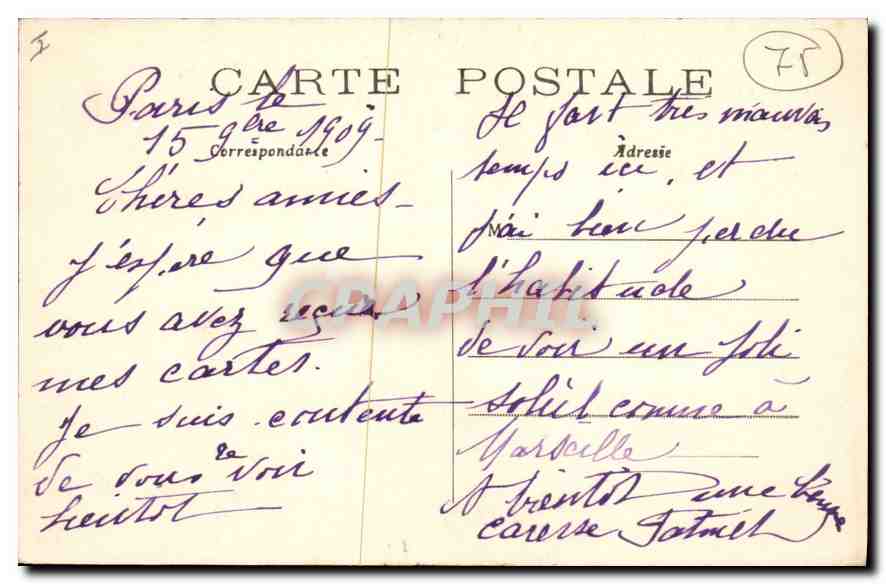 75
CARTE POSTALE
Correspondance
Adresse
M
Paris le
15 9bre 1909
Chères amies
j'espère que
vous avez reçues
mes cartes.
Je suis contente
de vous re voir
bientôt
Il fait très mauvais
temps ici, et
j'ai bien perdu
l'habitude
de voir un joli
soleil comme à
Marseille
A bientôt une
caresse
CPAPHIL